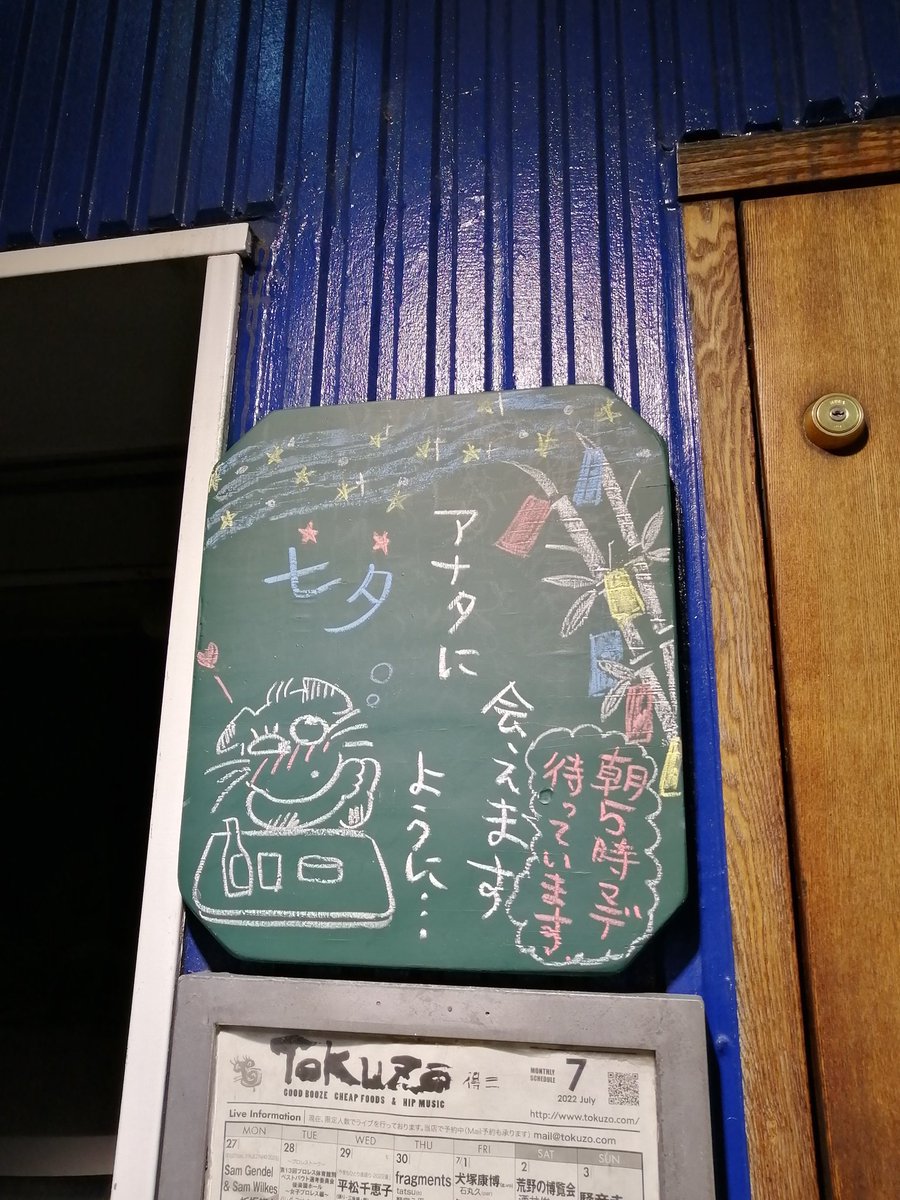 七夕
アナタに
会えます
ように・・・
朝5時マデ
待っています。
TOKUZO 得三
GOOD BOOZE CHEAP FOODS & HIP MUSIC
MONTHLY SCHEDULE
7
2022 July
http://www.tokuzo.com/
Live Information
現在、限定人数でライブを行っております。当店で予約中(Mail予約も承ります) mail@tokuzo.com
MON TUE WED THU FRI SAT SUN
27 28 29 30 7/1 2 3
Sam Gendel
& Sam Wilkes
平松千恵子
fragments
tatsu
犬塚康博
石丸久
荒野の博覧会